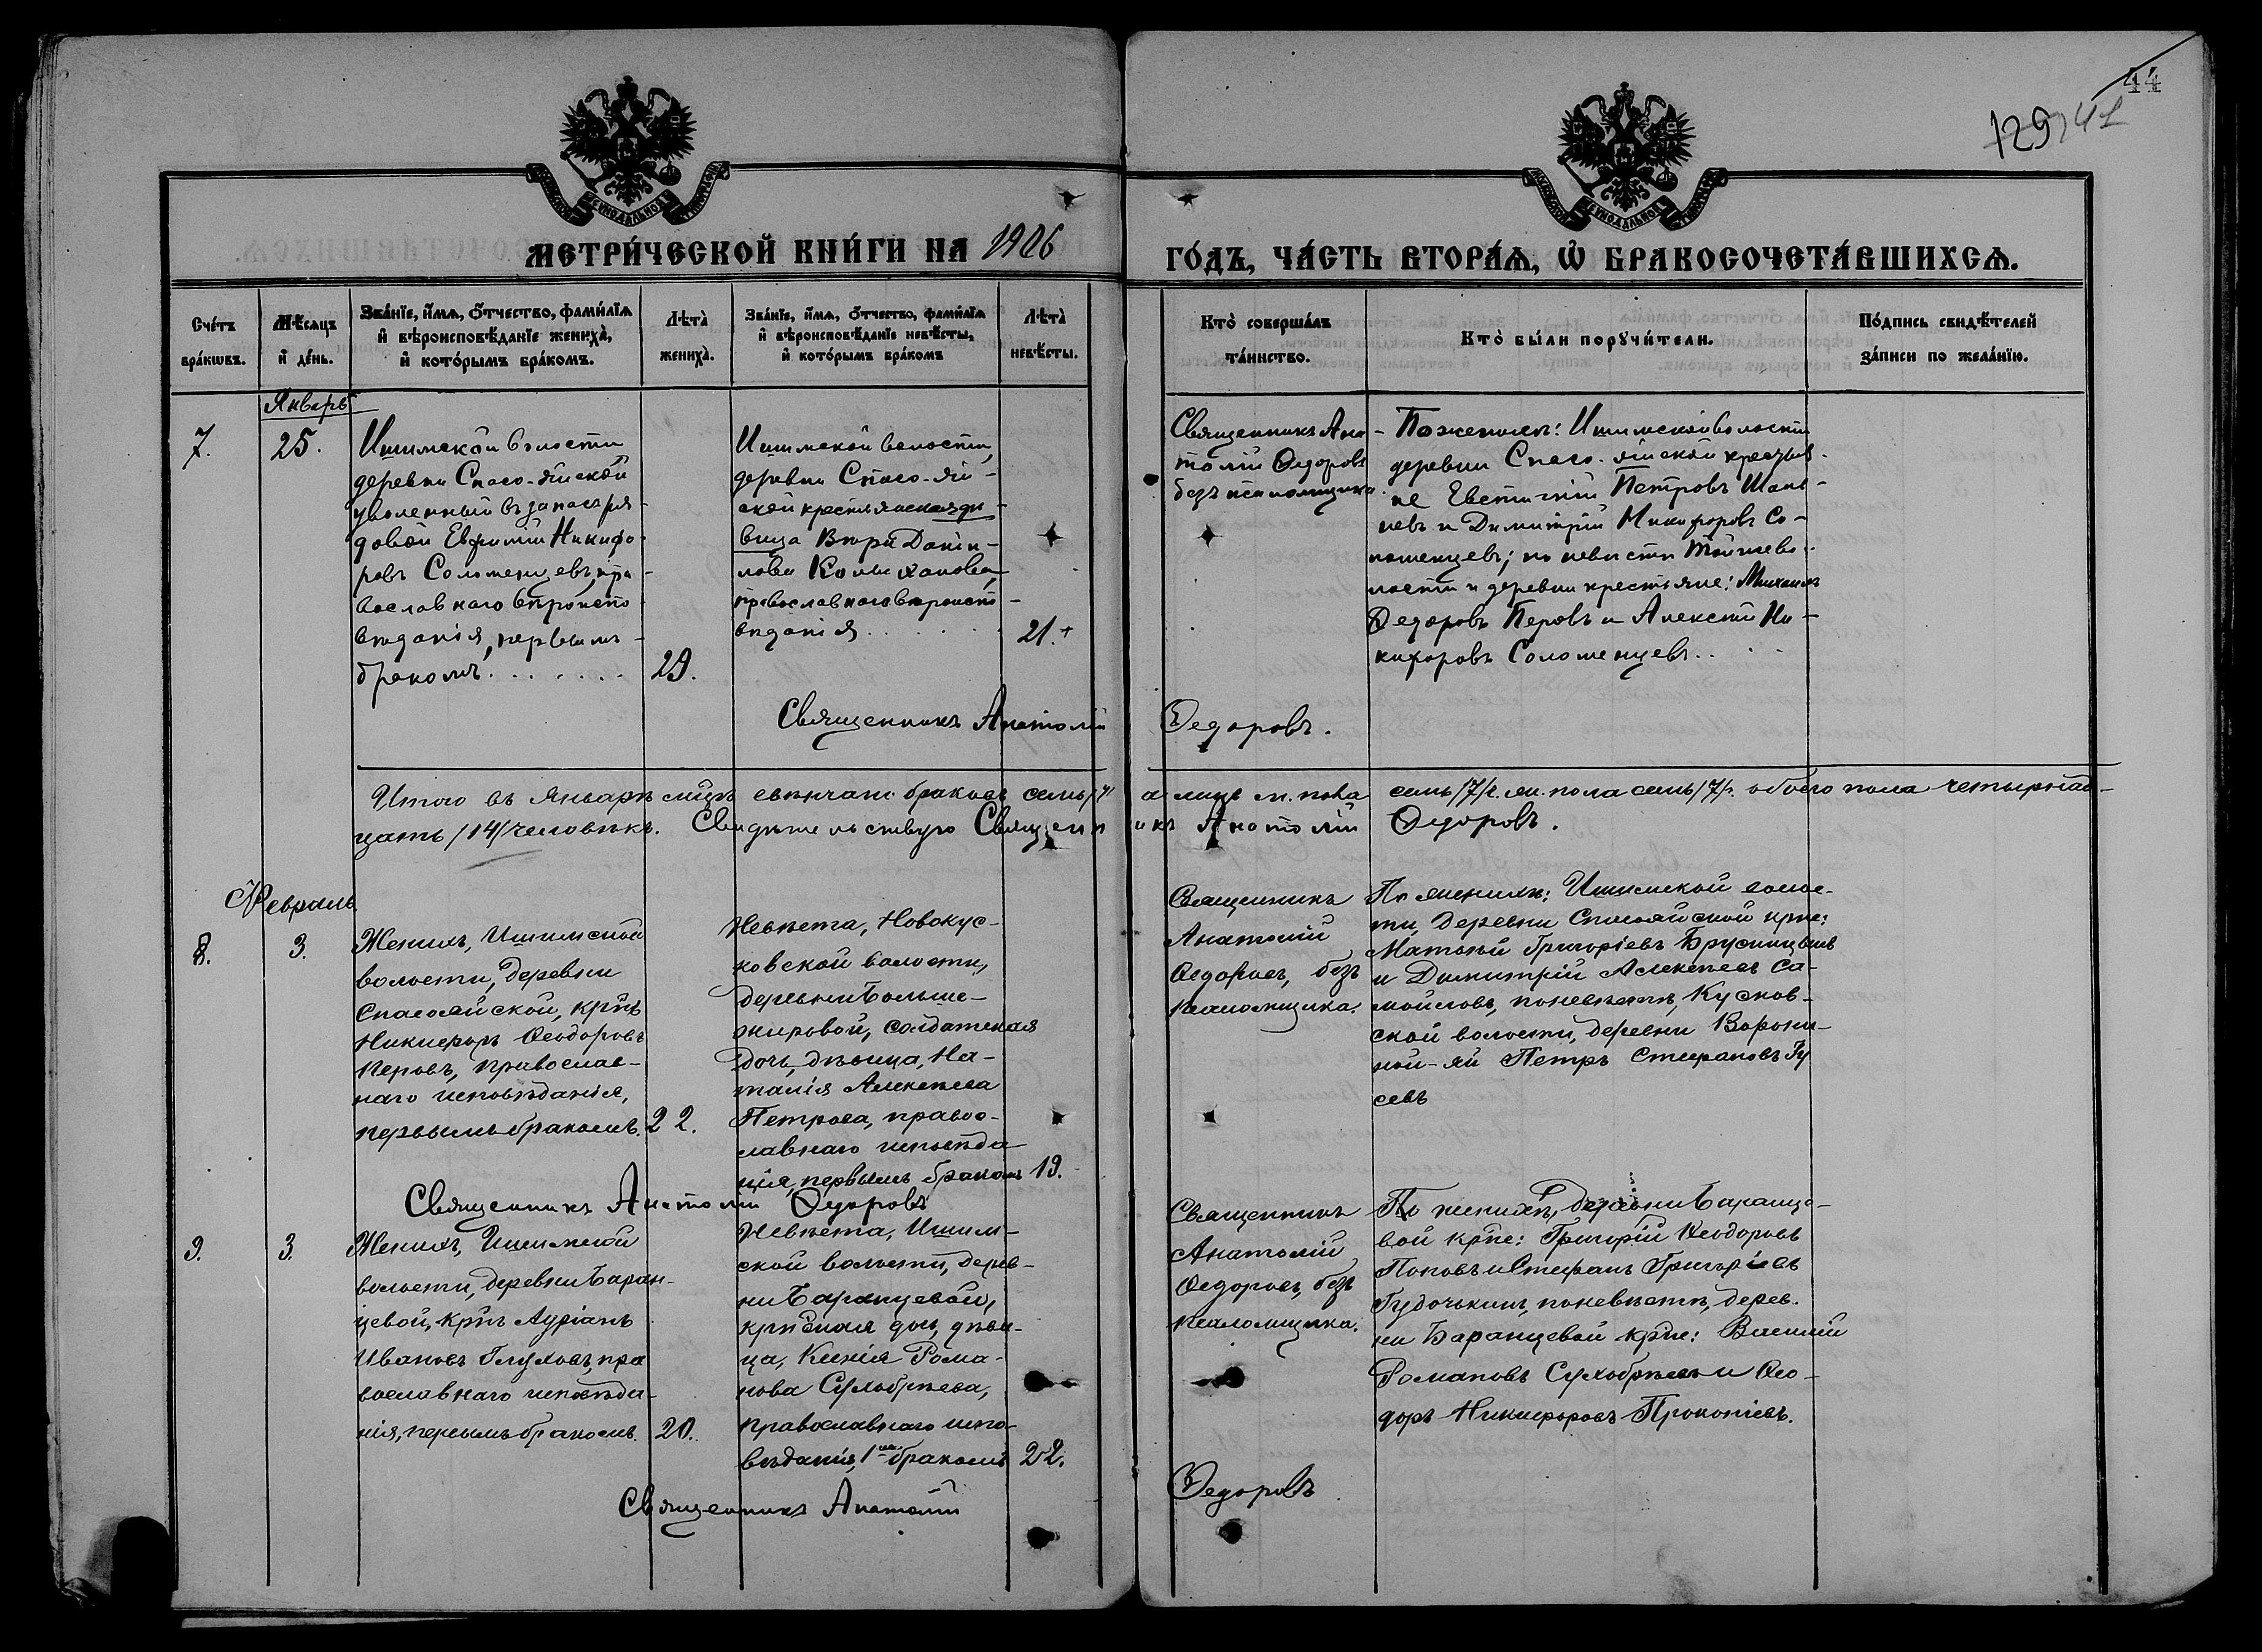 44
129 41
МЕТРИ́ЧЕСКОЙ КНИ́ГИ НА 1906
ГО́ДЪ, ЧА́СТЬ ВТОРА́Ѧ, Ѡ҆ БРАКОСОЧЕТА́ВШИХСѦ.
Сче́тъ
бра́кѡвъ.
Мѣ́сѧцъ
и҆ де́нь.
Зва́нїе, и҆́мѧ, ѻ҆́тчество, фами́лїѧ
и҆ вѣроисповѣ́данїе жениха̀,
и҆ кото́рымъ бра́комъ.
Лѣта̀
жениха̀.
Зва́нїе, и҆́мѧ, ѻ҆́тчество, фами́лїѧ
и҆ вѣроисповѣ́данїе невѣ́сты,
и҆ кото́рымъ бра́комъ
Лѣта̀
невѣ́сты.
Кто̀ соверша́лъ
та́инство.
Кто̀ бы́ли порꙋчи́тели.
По́дпись свидѣ́телей
за́писи по жела́нїю.
Январь
7.
25.
Ишимской волости
деревни Спасо-яйской
уволенный въ запасъ ря-
довой Евфимiй Никифо-
ровъ Соломенцевъ, пра-
вославнаго вѣроиспо
вѣданiя, первымъ
бракомъ.......
29.
Ишимской волости,
деревни Спасо-яй-
ской крестьянская дѣ-
вица Вѣра Данiи-
лова
православнаго вѣроиспо-
вѣданiя......
21.
Священникъ Ана-
толiй Ѳедоровъ
безъ псаломщика.
По женихѣ: Ишимской волости
деревни Спасо-яйской крестья-
не Евстигнiй Петровъ
и Димитрiй Никифоровъ Со-
ломенцевъ; по невѣстѣ той же во-
лости и деревни крестьяне: Михаилъ
Ѳедоровъ Перовъ и Алексѣй Ни-
кифоровъ Соломенцевъ....
Священникъ Анатолiй Ѳедоровъ.
Итого въ Январѣ мцѣ евѣнчано браковъ семь /7/ а лицъ м. пола семь /7/ ж. пола семь /7/. обоего пола четырнад-
цать /14/ человѣкъ. Свидѣтельствую Священникъ Анатолiй Ѳедоровъ.
Февраль
8.
3.
Женихъ, Ишимской
волости, деревни
Спасояйской, крнъ
Никифоръ Ѳеодоровъ
Перовъ, православ-
наго исповѣданiя,
первымъ бракомъ.
22.
Невѣста, Новокус-
ковской волости,
деревни Больше-
жировой, солдатская
дочь, дѣвица, На-
талiя Алексѣева
Петрова, правос-
лавнаго исповѣда-
нiя, первымъ бракомъ
19.
Священникъ
Анатолiй
Ѳедоровъ, безъ
псаломщика.
По женихѣ: Ишимской волос-
ти, деревни Спасояйской крне:
Матвѣй Григорiевъ Брусницынъ
и Димитрiй Алексѣевъ Са-
мойловъ, по невѣстѣ, Кусков-
ской волости, деревни Ворони-
ной-яи Петръ Стефановъ Гу
севъ
Священникъ Анатолiй Ѳедоровъ
9.
3.
Женихъ, Ишимской
волости, деревни Баран-
цевой, крнъ Адрiанъ
Ивановъ Глуховъ, пра
вославнаго исповѣда-
нiя, первымъ бракомъ.
20.
Невѣста, Ишим-
ской волости, дерев-
ни Баранцевой,
дочь, дѣви-
ца, Ксенiя Рома-
нова Сухобрѣева,
православнаго испо-
вѣданiя, 1мъ бракомъ
22.
Священникъ
Анатолiй
Ѳедоровъ, безъ
псаломщика.
По женихѣ, деревни Баранце-
вой крне: Григорiй Ѳеодоровъ
Поповъ и Стефанъ Григорiевъ
Гудочькинъ, по невѣстѣ, дерев.
ни Баранцевой крне: Василiй
Романовъ Сухобрѣевъ и Ѳео-
доръ Никифоровъ Прокопiевъ.
Священникъ Анатолiй Ѳедоровъ